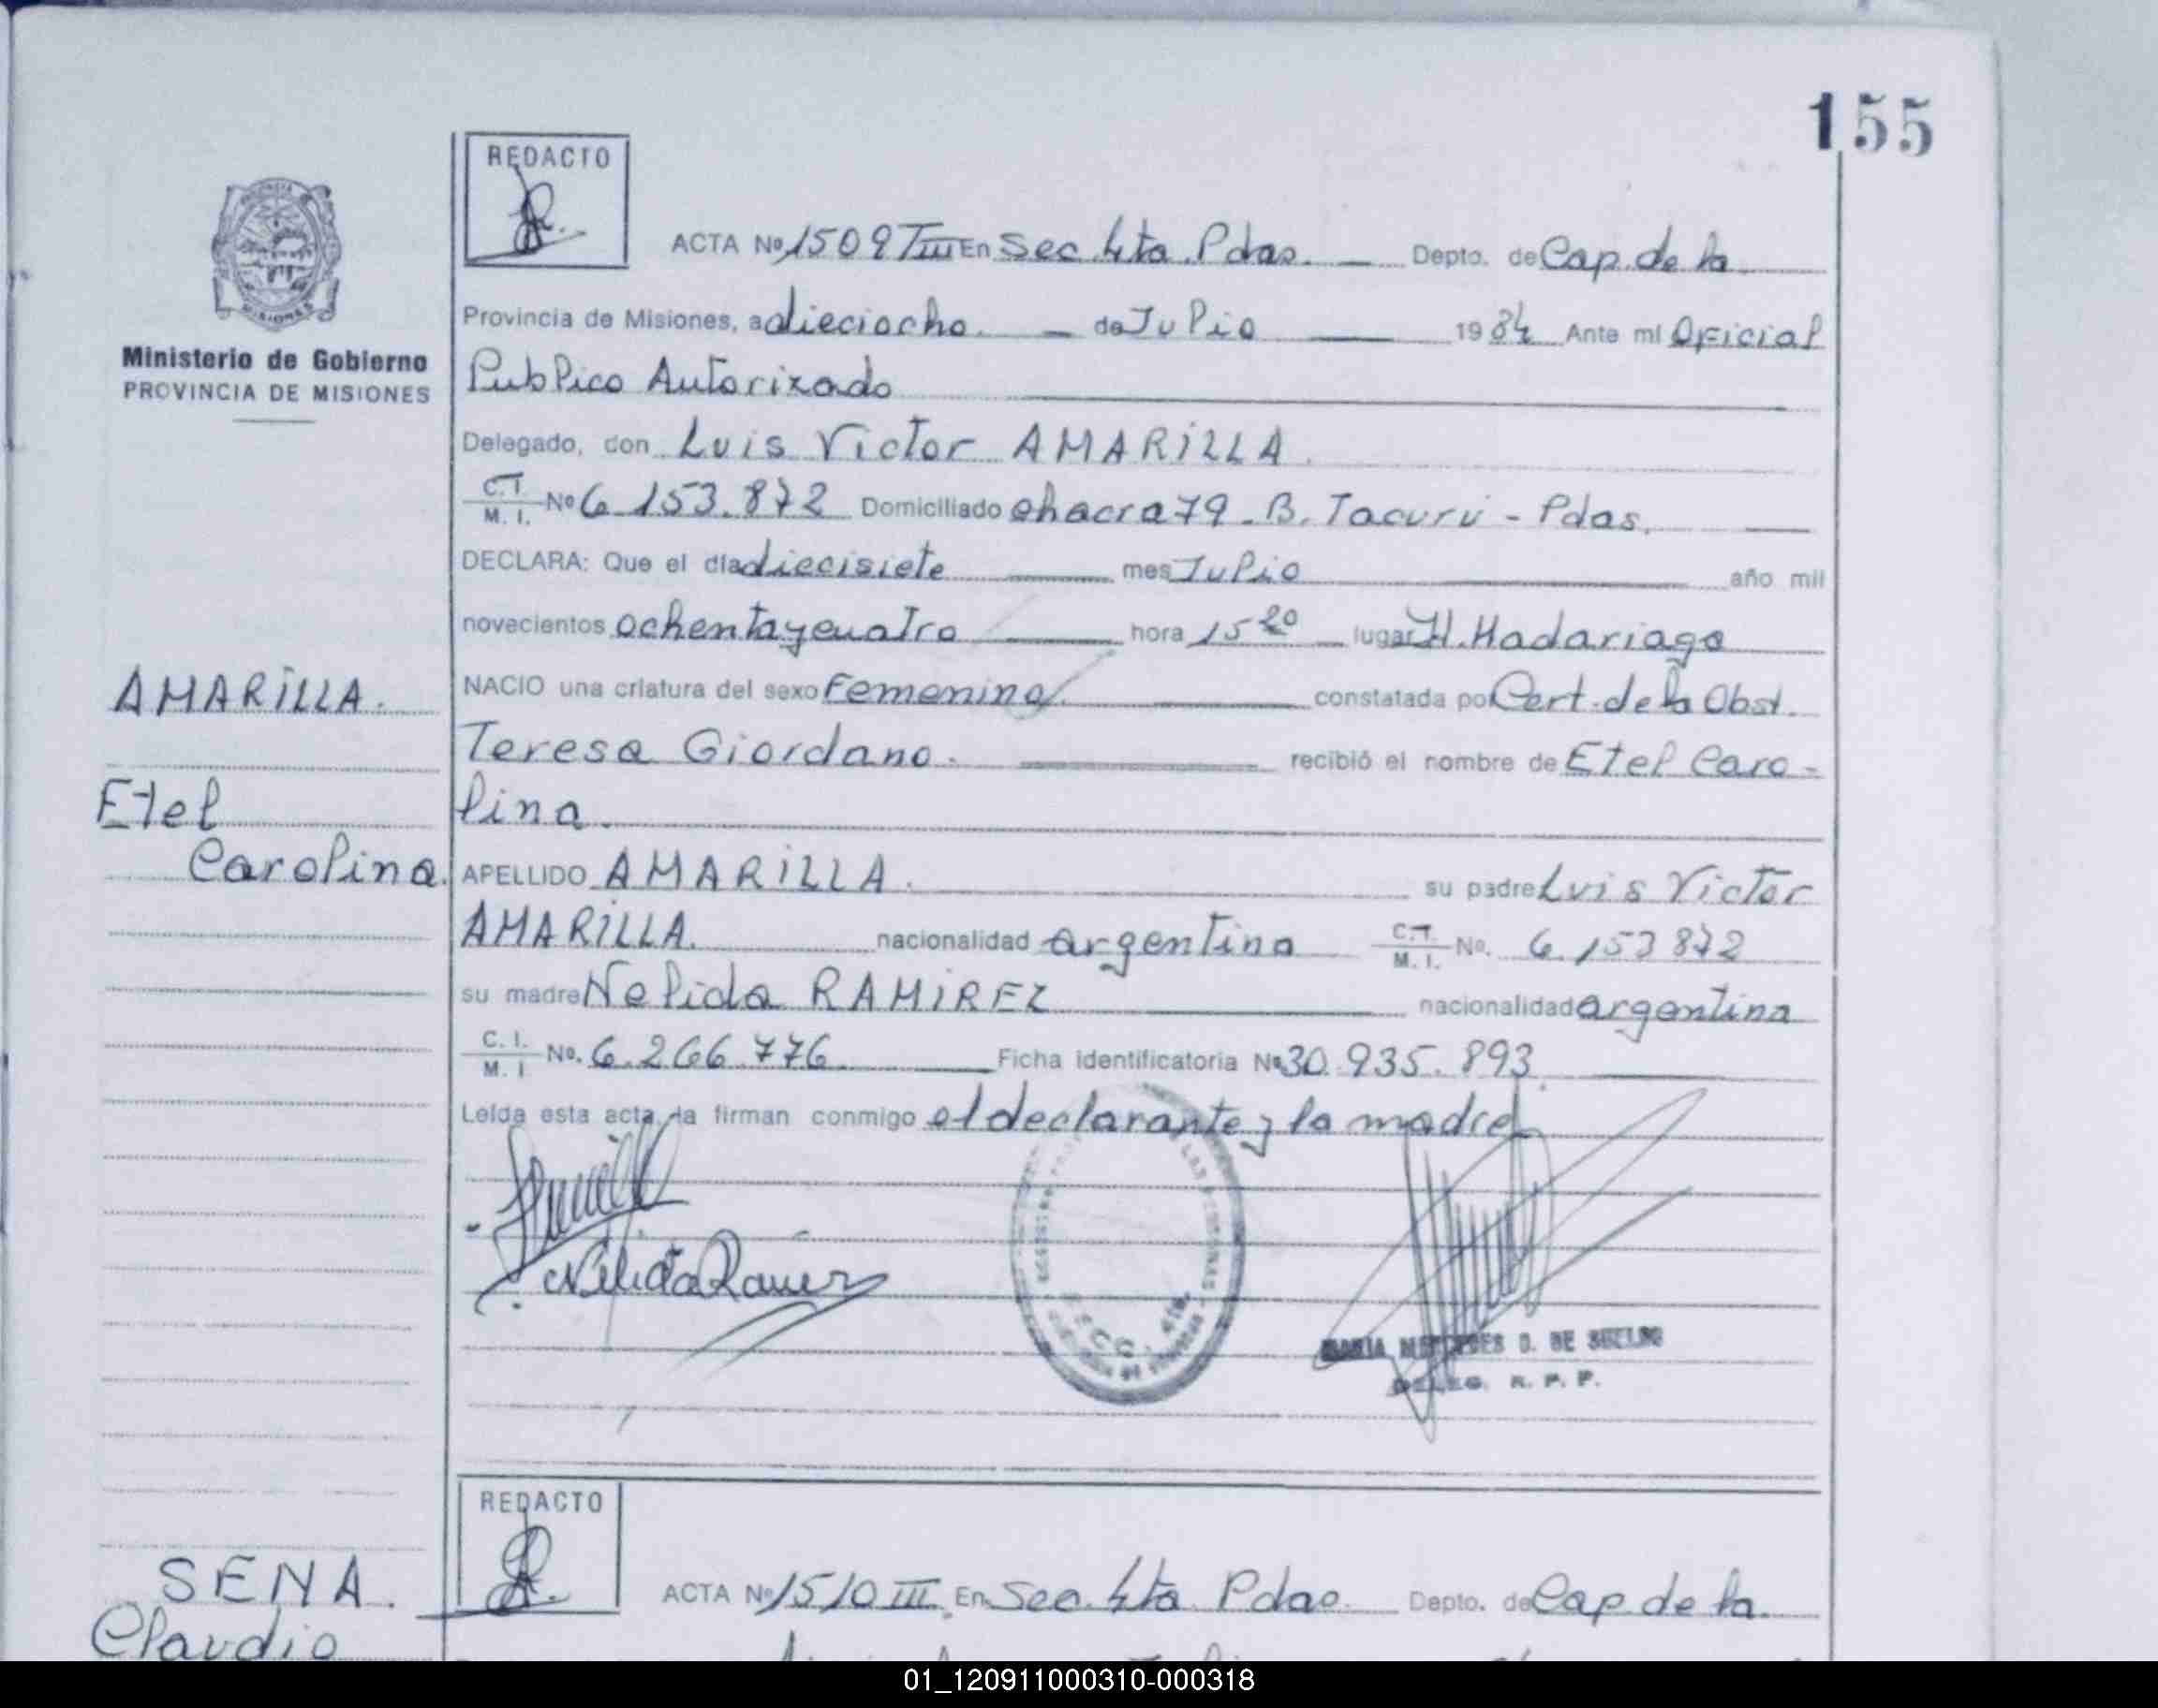 155
REDACTO
ACTA Nº 1509 TIII En Sec. 4ta. Pdas. Depto. de Cap. de la
Provincia de Misiones, a dieciocho. de Julio 1984 Ante mí Oficial
Publico Autorizado
Delegado, don Luis Victor AMARILLA.
C.I. M.I. Nº 6.153.872 Domiciliado chacra 79 - B. Tacuru - Pdas.
DECLARA: Que el día diecisiete mes Julio año mil
novecientos ochenta y cuatro hora 15 20 lugar H. Madariaga
NACIO una criatura del sexo Femenino. constatada por Cert. de la Obst.
Teresa Giordano. recibió el nombre de Etel Caro-
lina.
APELLIDO AMARILLA. su padre Luis Victor
AMARILLA. nacionalidad argentina C.I. M.I. No. 6.153872
su madre Nelida RAMIREZ nacionalidad argentina
C.I. M.I No. 6.266.776 Ficha identificatoria Nº 30.935.893
Leída esta acta, la firman conmigo el declarante y la madre
Nélida Ramirez
DE
DELEG. R. P. P.
Ministerio de Gobierno
PROVINCIA DE MISIONES
AMARILLA.
Etel
Carolina.
REDACTO
ACTA Nº 1510 III. En Sec. 4ta. Pdas. Depto. de Cap. de la
SENA.
Claudio
01_120911000310-000318